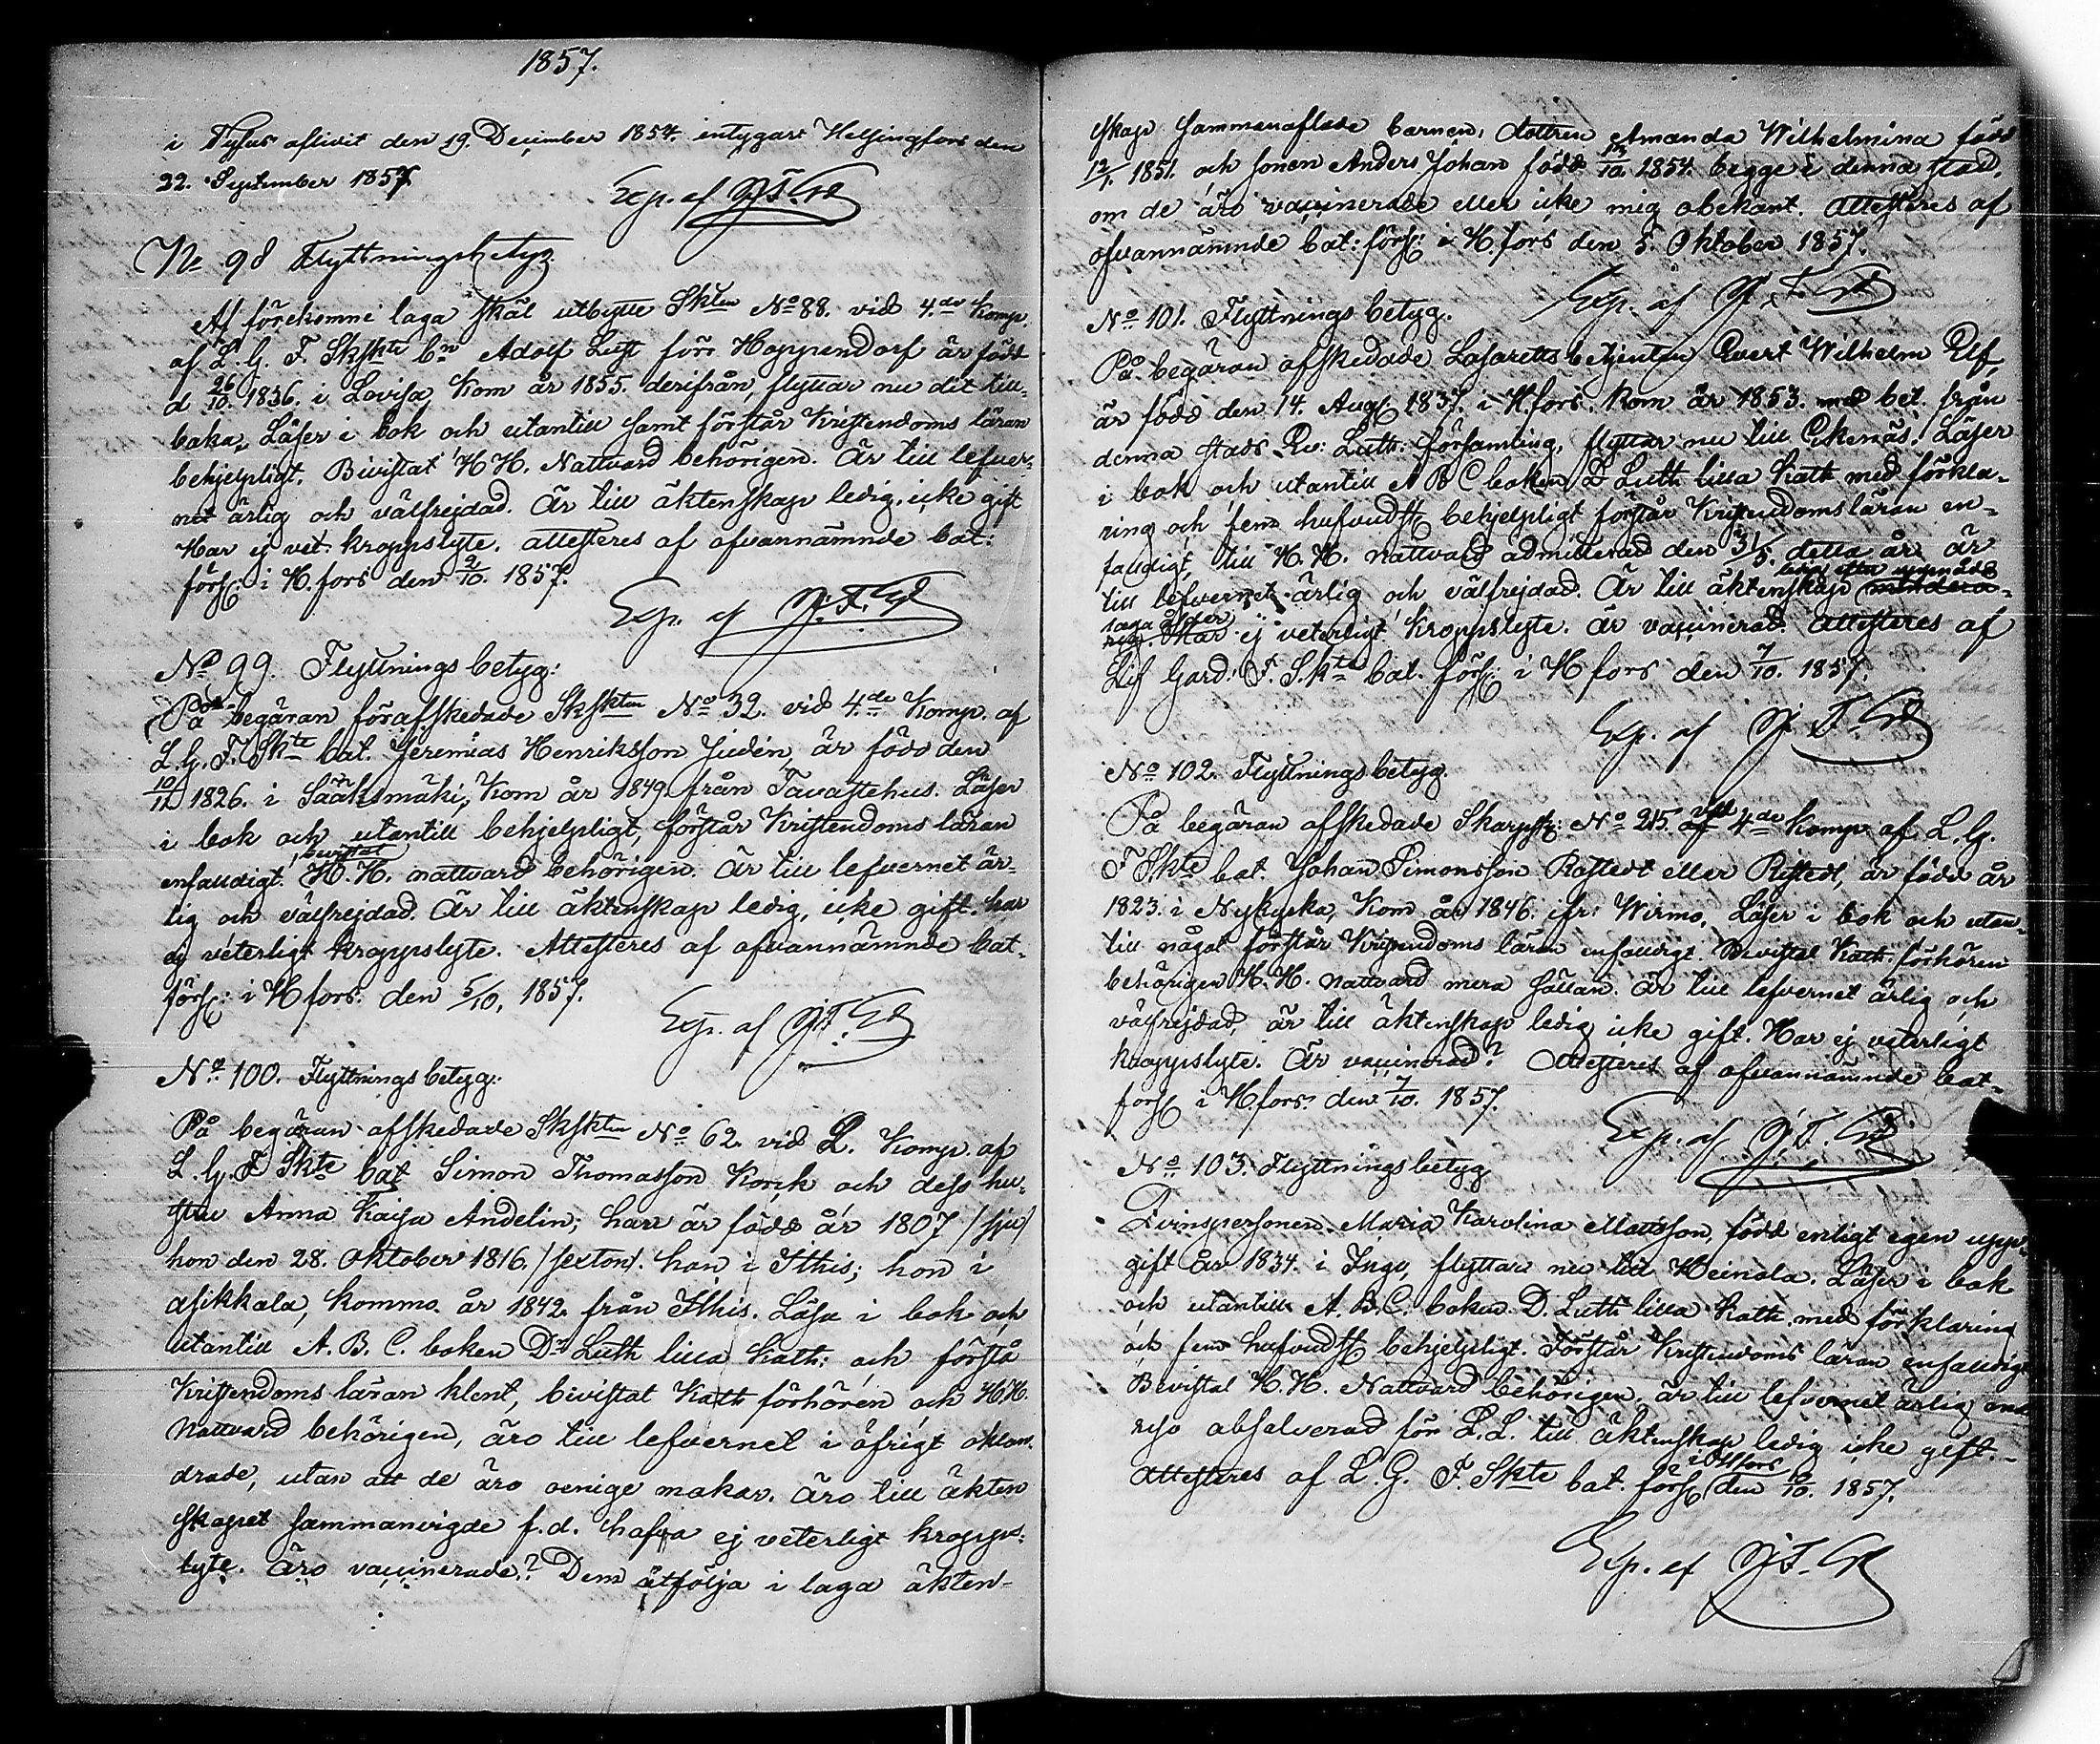 1857.
i Tyfus aflidit den 19. December 1854. intygar Helsingfors den
22. September 1857
Exp. af
No 98 Flyttningsbetyg
Af förekomne laga skäl utbytte Skten No 88. vid 4.de Komp.
af L. G. F. Skskte bn Adolf Luft förr Hoppendorf är född
d 26/10. 1836. i Lovisa, Kom år 1855. derifrån, flyttar nu dit till-
baka, Läser i bok och utantill samt förstår Kristendoms läran
behjelpligt. Bivistat H H. Nattvard behörigen. Är till lefver-
net ärlig och välfrejdad. Är till äktenskap ledig, icke gift
Har ej vet. kroppslyte. attesteres af ofvannämnde bat:
förs: i H.fors den 2/10. 1857.
Exp. af
No 99. Flyttnings betyg:
På begäran förafskedade Skskten No 32. vid 4.de Komp. af
L. G. F. Skte bat. Jeremias Henriksson Judén, är född den
10/12 1826. i Sääksmäki, Kom år 1849 från Tavastehus. Läser
i bok och utantill behjelpligt, förstår Kristendoms läran
bivistat
enfaldigt. H. H. nattvard behörigen. Är till lefvernet är-
lig och välfrejdad. Är till äktenskap ledig, icke gift. har
ej veterligt kroppslyte. Attesteres af ofvannämnde bat-
förs: i H fors. den 5/10. 1857.
Exp. af
No 100. Flyttnings betyg:
På begäran afskedade Skskten No 62. vid L. Komp. af
L. G. F Skte bat Simon Thomasson Korck och dess hu-
stru Anna Kaisa Andelin; han är född år 1807 /sju/
hon den 28. Oktober 1816. /sexton/. han i Itthis; hon i
Asikkala, Kommo år 1842. från Itthis. Läsa i bok och
utantill A. B. C. boken Dr Luth lilla Kath: och förstå
Kristendoms läran klent, bivistat Kath förhören och H. H.
Nattvard behörigen, äro till lefvernet i öfrigt oklan-
drade, utan att de äro oenige makar. Äro till äkten
skapet sammanvigde f.d. hafva ej veterligt kropps-
lyte. Äro vaccinerade? Dem åtfölja i laga äkten-
skap sammanaflade barnen, dottren Amanda Wilhelmina född
12/1. 1851. och sonen Anders Johan född 10. 1854. begge i denna stad,
om de äro vaccinerade eller icke mig obekant. Attesteres af
ofvannämnde bat: förs: i H.fors den 5. Oktober 1857.
Exp. af
No 101. Flyttnings betyg.
På begäran afskedade Lasaretts betjenten Evert Wilhelm Elf,
är född den 14. Aug 1837. i H.fors. Kom år 1853. med bet. från
denna stads Ev: Luth: församling, flyttar nu till Ekenäs. Läser
i bok och utantill A B C boken D Luth lilla Kath med förkla-
ring och fem hufvudst behjelpligt förstår Kristendomsläran en-
faldigt, till H. H. nattvard admitterad den 31/5. detta år är
ledig efter uppnådd
till lefvernet ärlig och välfrejdad. Är till äktenskap mindera-
laga ålder
rig. Har ej veterligt kroppslyte. är vaccinerad. attesteres af
Lif Gard. F. Skte bat. förs: i H fors den 7/10. 1857.
Exp. af
No 102. Flyttnings betyg.
vid
På begäran afskedade Skarpsk: No 215. af 4de Komp af L. G.
F Skte bat. Johan Simonsson Rostedt eller Ristedt, är född år
1823. i Nykyrka, Kom år 1846. ifr: Wirmo, Läser i bok och utan-
till något förstår Kristendoms läran enfaldigt. Bivistat Kath: förhören
behörigen H. H. nattvard mera sällan. Är till lefvernet ärlig och
välfrejdad, är till äktenskap ledig icke gift. Har ej veterligt
kroppslyte. Är vaccinerad? Attesteres af ofvannämnde bat-
förs i H.fors. den 7/10. 1857.
Exp. af
No 103. Flyttnings betyg
Qvinspersonen Maria Karolina Mattsson, född enligt egen upp-
gift år 1834. i Ingo, flyttar nu till Heinola. Läser i bok
och utantill A. B. C. boken D. Luth lilla Kath. med förklaring
och fem hufvudst behjelpligt. Förstår Kristendoms läran enfaldigt
Bivistat H. H. Nattvard behörigen, är till lefvernet ärlig
absolverad för L. L. till äktenskap ledig icke gift.
i H fors
attesteres af L. G. F. Skte bat. förs den /10. 1857.
Exp. af